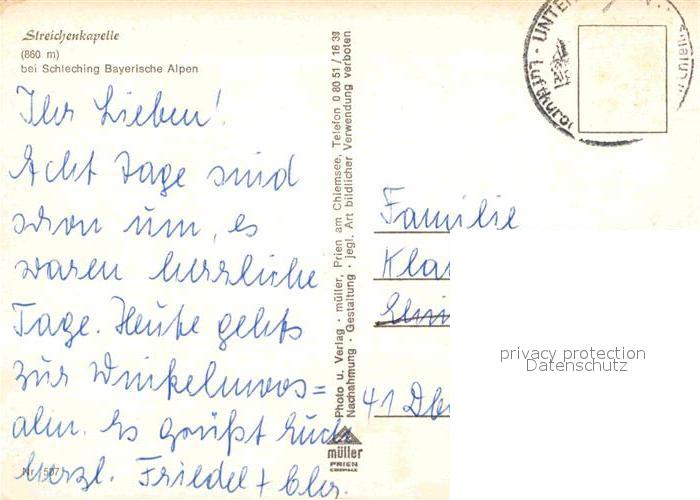 Streichenkapelle
(860 m)
bei Schleching Bayerische Alpen
Ihr Lieben!
Acht Tage sind
schon um, es
waren herrliche
Tage. Heute gehts
zur Winkelmoos=
alm. Es grüßt Euch
herzl. Friedel +
Nr. 1507
Photo u. Verlag · müller, Prien am Chiemsee, Telefon 0 80 51 / 16 39
Nachahmung · Gestaltung · jegl. Art bildlicher Verwendung verboten
müller
PRIEN
CHIEMSEE
Luftkurort · UNTER
Familie
Kla
41 Db
privacy protection
Datenschutz